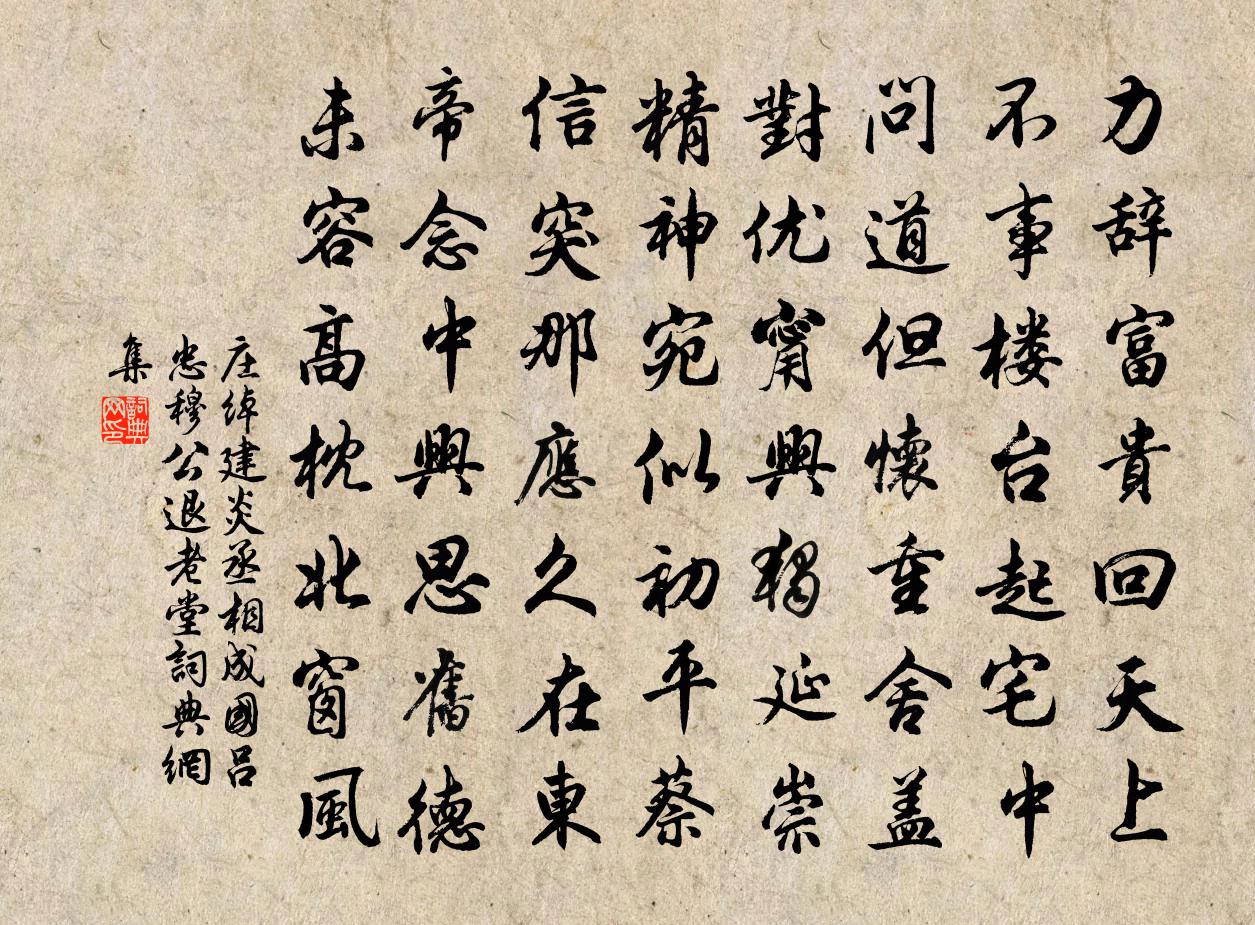 力辞富貴回天上
不事楼台起宅中
問道但懷重舍盖
對优甯興獨延崇
精神宛似初平蔡
信突那應久在東
帝念中興思舊德
未容高枕北窗風
庄绰建炎丞相成國呂
忠穆公退老堂詞典網
集
詞典網印